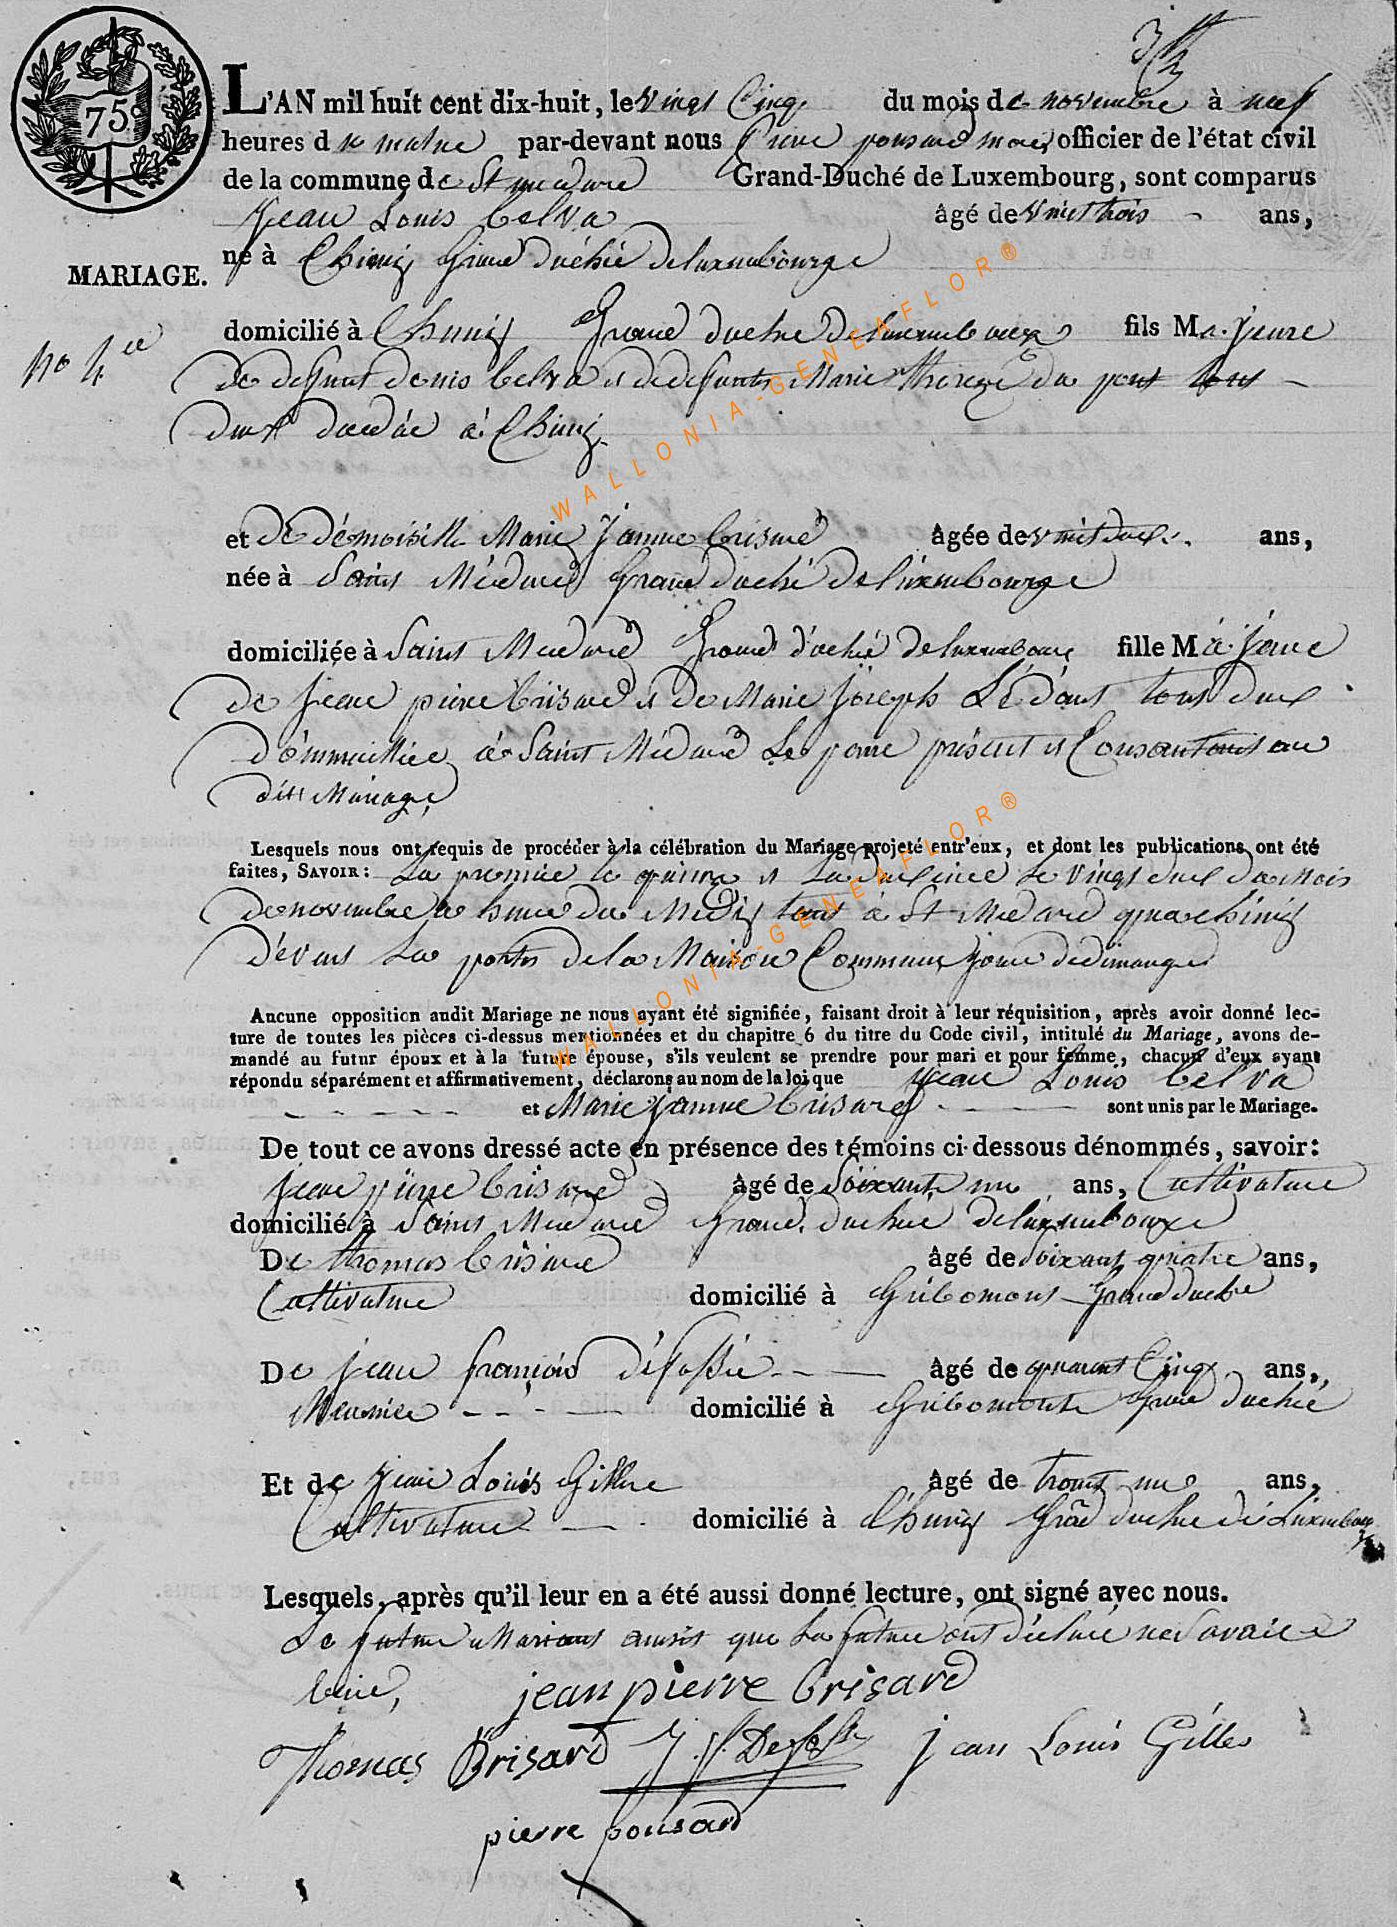 75c
L'AN mil huit cent dix-huit, le vingt Cinq du mois de novembre à neuf
heures du matin par-devant nous pierre ponsard officier de l'état civil
de la commune de St medard Grand-Duché de Luxembourg, sont comparus
jean Louis Belva âgé de vinttrois ans,
né à Chini Grand duché deluxembourge
MARIAGE.
domicilié à Chini Grand duché deluxembourg fils Majeure
no 4
de defunt denis belva et dedefunte Marie therese du pont tous
deux à Chini
et de démoiselle Marie janne brisard âgée de vintdeux ans,
née à Saint Médard Grand duché deluxembourge
domiciliée à Saint Medard Grand duché deluxembourg fille Majeure
de jean pierre brisard et de Marie joseph Lédant tous deux
à Saint Médard Le present et au
dit Mariage
Lesquels nous ont requis de procéder à la célébration du Mariage projeté entr'eux, et dont les publications ont été
faites, SAVOIR : La premiere le quinze et La deuxieme le vingt deux du Mois
denovembre a heure du Midi tant à St Medard qua chini
dévant La porte dela Maison Commune jour dedimange
Aucune opposition audit Mariage ne nous ayant été signifiée, faisant droit à leur réquisition, après avoir donné lec-
ture de toutes les pièces ci-dessus mentionnées et du chapitre 6 du titre du Code civil, intitulé du Mariage, avons de-
mandé au futur époux et à la future épouse, s'ils veulent se prendre pour mari et pour femme, chacun d'eux ayant
répondu séparément et affirmativement, déclarons au nom de la loi que jean Louis belva
et Marie janne brisard sont unis par le Mariage.
De tout ce avons dressé acte en présence des témoins ci-dessous dénommés, savoir :
jean pierre brisard âgé de Soixante un ans, Cultivateur
domicilié à Saint Medard Grand duché deluxembourg
De thomas brisard âgé de soixant quatre ans,
Cultivateur domicilié à Gribomont Grand duché
De jean françois défossé âgé de quarant Cinq ans,
Meunier domicilié à Gribomont Grand duché
Et de jean Louis Gille âgé de trente un ans,
Cultivateur domicilié à Chini Grand duché de Luxembourg
Lesquels, après qu'il leur en a été aussi donné lecture, ont signé avec nous.
Le futur ainsi que La future ont déclaré
jean pierre brisard
Thomas Brisard J. f. Defosse jean Louis Gilles
pierre ponsard
WALLONIA-GENEAFLOR®
WALLONIA-GENEAFLOR®